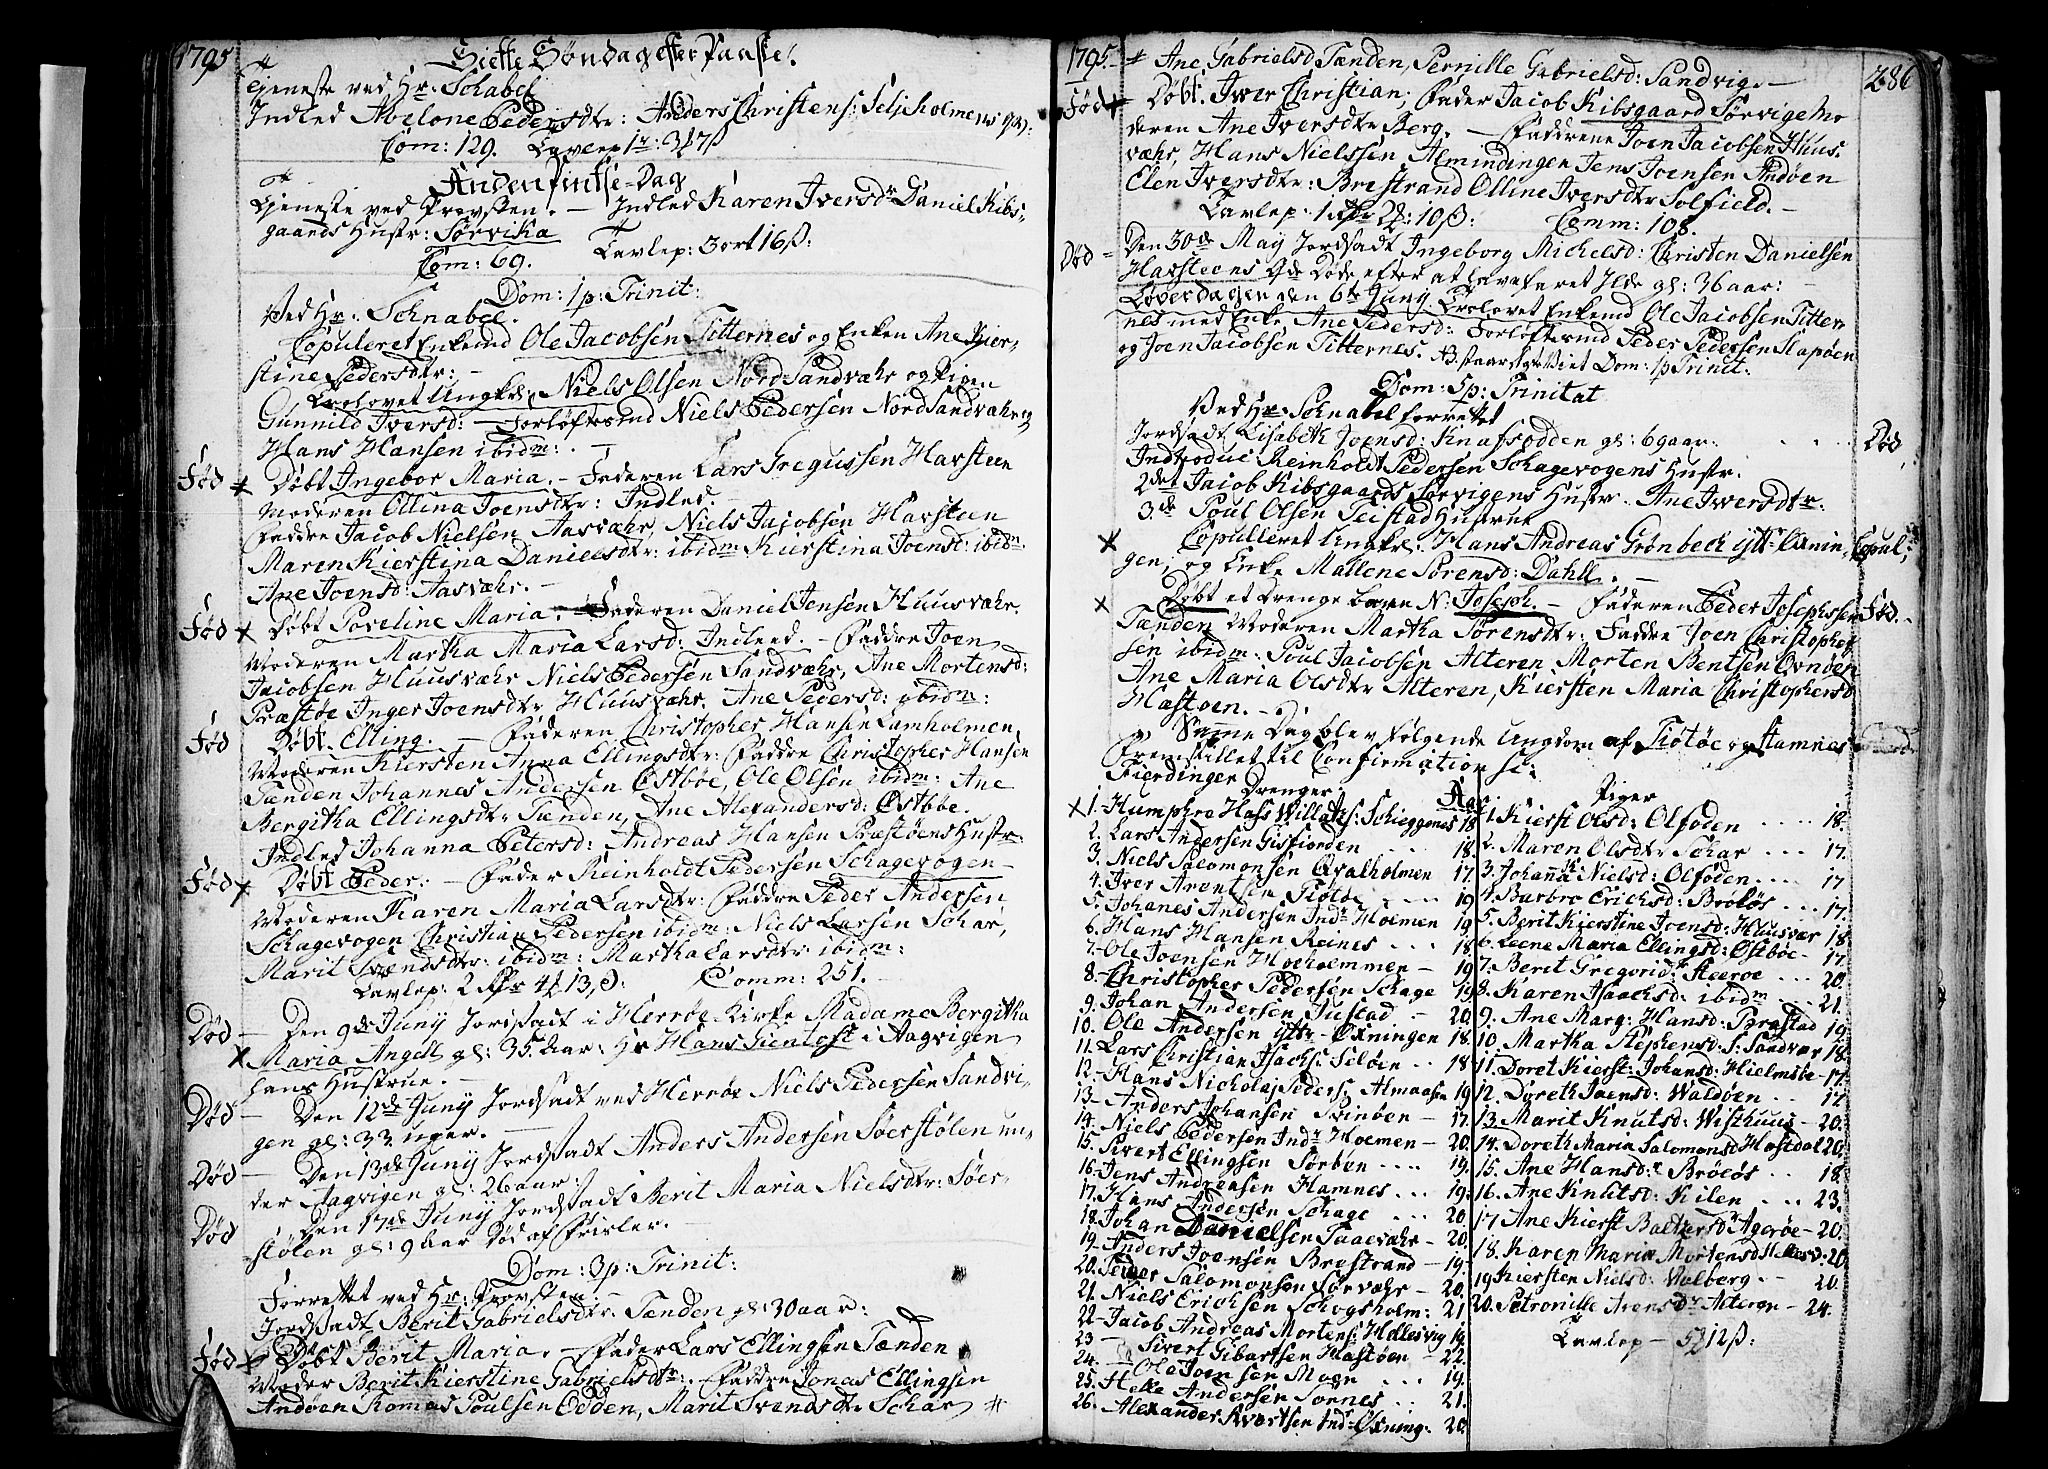 1795
Siette Søndag efter Paaske.
Tieneste ved Hr: Schabel
Indled Abelone Pedersdtr: Anders Christens: Seljeholmens
Com: 129. Tavlep 1 : 3 7 ß
Anden Pintse-Dag
Tieneste ved Provsten. — Indled Karen Iversdr Daniel Kibs-
gaards Hustr: Sørvika Tavlep: 3 ort 16 ß:
Com: 69.
Dom: 1 p: Trinit:
Ved Hr: Schnabel.
Copuleret Enkemd Ole Jacobsen Titternes og Enken Ane Kier-
stine Pedersdtr: —
Trolovet Ungkl: Niels Olsen Nord Sandvær og Pigen
Gunnild Iversd: — Forløftermd Niels Pedersen Nord Sandvæhr og
Hans Hansen ibidm: —
Fød Døbt Ingebor Maria. — Faderen Lars Gregussen Havsteen
Moderen Ollina Joensdtr: Indled.
Faddre Jacob Nielsen Aasvæhr, Niels Jacobsen Havsteen
Maren Kierstina Danielsdtr: ibidm Kierstina Joensd: ibidm
Ane Joensd: Aasvæhr. —
Fød Døbt Poveline Maria. — Faderen Daniel Jensen Huusvæhr.
Moderen Martha Maria Larsd: Indleed. — Faddre Joen
Jacobsen Huusvæhr Niels Pedersen Sandvæhr, Ane Mortensd:
Præstøe Inger Joensdtr Huusvæhr. Ane Pedersd: ibidm:
Fød Døbt. Elling. — Faderen Christopher Hansen Lamholmen,
Moderen Kiersten Anna Ellingsdtr: Faddre Christopher Hansen
Tænden Johannes Andersen Østbøe, Ole Olsen ibidm: Ane
Bergitha Ellingsdtr Tænden, Ane Alexandersd: Østbøe.
Indled Johanna Petersd: Andreas Hansen Præstøens Hustr:
Fød Døbt Peder: — Fader Reinholdt Pedersen Schagevogen —
Moderen Karen Maria Larsdtr: Faddre Peder Andersen
Schagevogen Christian Pedersen ibidm: Niels Larsen Schar,
Marit Svendsdtr: ibidm: Martha Larsdtr ibidm:
Tavlep: 2 4 13 ß Comm: 251.
Død — Den 9de Juny Jordsadt i Herrøe Kirke Madame Bergitha
Maria Angell gl: 35 Aar: Hr Hans Gientoft i Aagvigen
hans Hustrue. —
Død — Den 12de Juny Jordsadt ved Herrøe Niels Pedersen Sandvi-
gen gl: 33 uger. —
Død — Den 13de Juny Jordsadt Anders Andersen Søerstølen un-
der Aagvigen gl: 26 aar:
Død Den 17de Juny Jordsadt Berit Maria Nielsdtr: Søer-
stølen gl: 9 aar Død af Frisler. —
Dom: 3 p: Trinit:
Forrettet ved Hr: Provsten. —
Jordsadt Berit Gabrielsdtr: Tænden gl: 30 aar:
Fød Døbt Berit Maria. — Fader Lars Ellingsen Tænden
Moder Berit Kierstine Gabrielsdtr. Faddre Jonas Ellingsen
Andøen Thomas Poulsen Odden, Marit Svendsdtr Schar
1795. Ane Gabrielsd Tænden, Pernille Gabrielsd: Sandvig. — 286
Fød Døbt. Iver Christian; Fader Jacob Kibsgaard Sørvige Mo
deren Ane Iversdtr Berg. — Faddrene Joen Jacobsen Huus
væhr, Hans Nielssen Almindingen Jens Joensen Andøen
Elen Iversdtr: Brestrand Olline Iversdtr Solfield. —
Tavlep: 1 2 : 10 ß: Comm: 108.
Død — Den 30de May Jordsadt Ingeborg Michelsd: Christen Danielsen
Havsteens gl: 36 aar: —
Løverdagen den 6te Juny Trolovet Enkemd Ole Jacobsen Titter-
nes med Enke Ane Pedersd: Forløftermd Peder Pedersen Slapøen
og Joen Jacobsen Titternes. Viet Dom: 1 p Trinit.
Dom: 5 p: Trinitat
Ved Hr: Schnabel forrettet
Jordsadt Lisabeth Joensd: Knafsodden gl: 69 aar. Død
Introduc Reinholdt Pedersen Schagevogens Hustr.
2det Jacob Kibsgaards Sørvigens Hustr. Ane Iversdtr.
3de Poul Olsen Teistad Hustrue
Copulleret Ungkl: Hans Andreas Grønbech Copul;
gen, og Enke Mallene Sørensd: Dahll. —
Døbt et Drenge baren N: Joseph. — Faderen Peder Josephsen Fød.
Tænden Moderen Martha Sørensdtr: Faddre Joen Christopher-
sen ibidm: Poul Jacobsen Alteren Morten Bentsen Ovnden
Ane Maria Olsdtr Alteren, Kiersten Maria Christophersd
Hæstøen. —
Samme Dag blev følgende Ungdom af Tiøtøe og Hamnes
Fremstillet til Confirmation
Fierdinger
Drenger. Aar
1. Humphre Hass Willats: Schieggenes 18
2. Lars Andersen Gisfiorden 18.
3. Niels Salomonsen Qvalholmen 17.
4. Iver Arentsen Tiøtøe 19
5. Johanes Andersen Indr Holmen 19
6. Hans Hansen Reines 18.
7. Ole Joensen Hoeholmmen 19
8. Christopher Pedersen Schage 19
9. Johan Andersen Justad 20.
10. Ole Andersen Yttr Øxningen 18.
11. Lars Christian Isachs: Seløen 18
12. Hans Nicholaj Peders: Almaasen 19
13. Anders Johansen Svinøen 17.
14. Niels Pedersen Indr Holmen 20.
15. Sivert Ellingsen Sørbøen 19.
16. Jens Andreasen Hamnes 19.
17. Hans Andersen Schage 20.
18. Johan Danielsen Taaevæhr 20.
19. Anders Joensen Brestrand 19.
20. Peder Salomonsen Sørvæhr 20.
21. Niels Erichsen Schogsholm: 21
22. Jacob Andreas Mortens: Hellesvig 19.
23. Sivert Gibartsen Hæstøen 22.
24. Ole Joensen Moen 19.
25. Helle Andersen Sørnes 21.
26. Alexander Kvartsen Indr Øxning: 20.
Piger
1. Kirsti Olsd: Olfoden 18.
2. Maren Olsdtr Schar 17.
3. Johanna Nielsd: Olfoden 17
4. Barbro Erichsd: Brøløs 17.
5. Berit Kierstine Joensd: Huusvær 18
6. Leene Maria Ellingsd: Østbøe 17.
7. Berit Gregorid: Steeroe 20.
8. Karen Isaachsd: ibidm 21.
9. Ane Marg: Hansd: Bræstad 19
10. Martha Stephensd: S: Sandvær 18.
11. Doret Kierst: Johansd: Hielmsøe 17.
12. Doreth Joensd: Waldøen 17
13. Marit Knutsd: Wisthuus 20.
14. Doreth Maria Salomonsd Hæstdal 20
15. Ane Hansd: Brøløs 18.
16. Ane Knutsd: Kilen 23.
17 Ane Kierst Baltzersd Agerøe 20.
18. Karen Maria Mortensd 20
19 Kiersten Nielsd: Walberg 20.
20. Petronille Arensdr Alteren 24.
Tavlep — 5 12 ß: